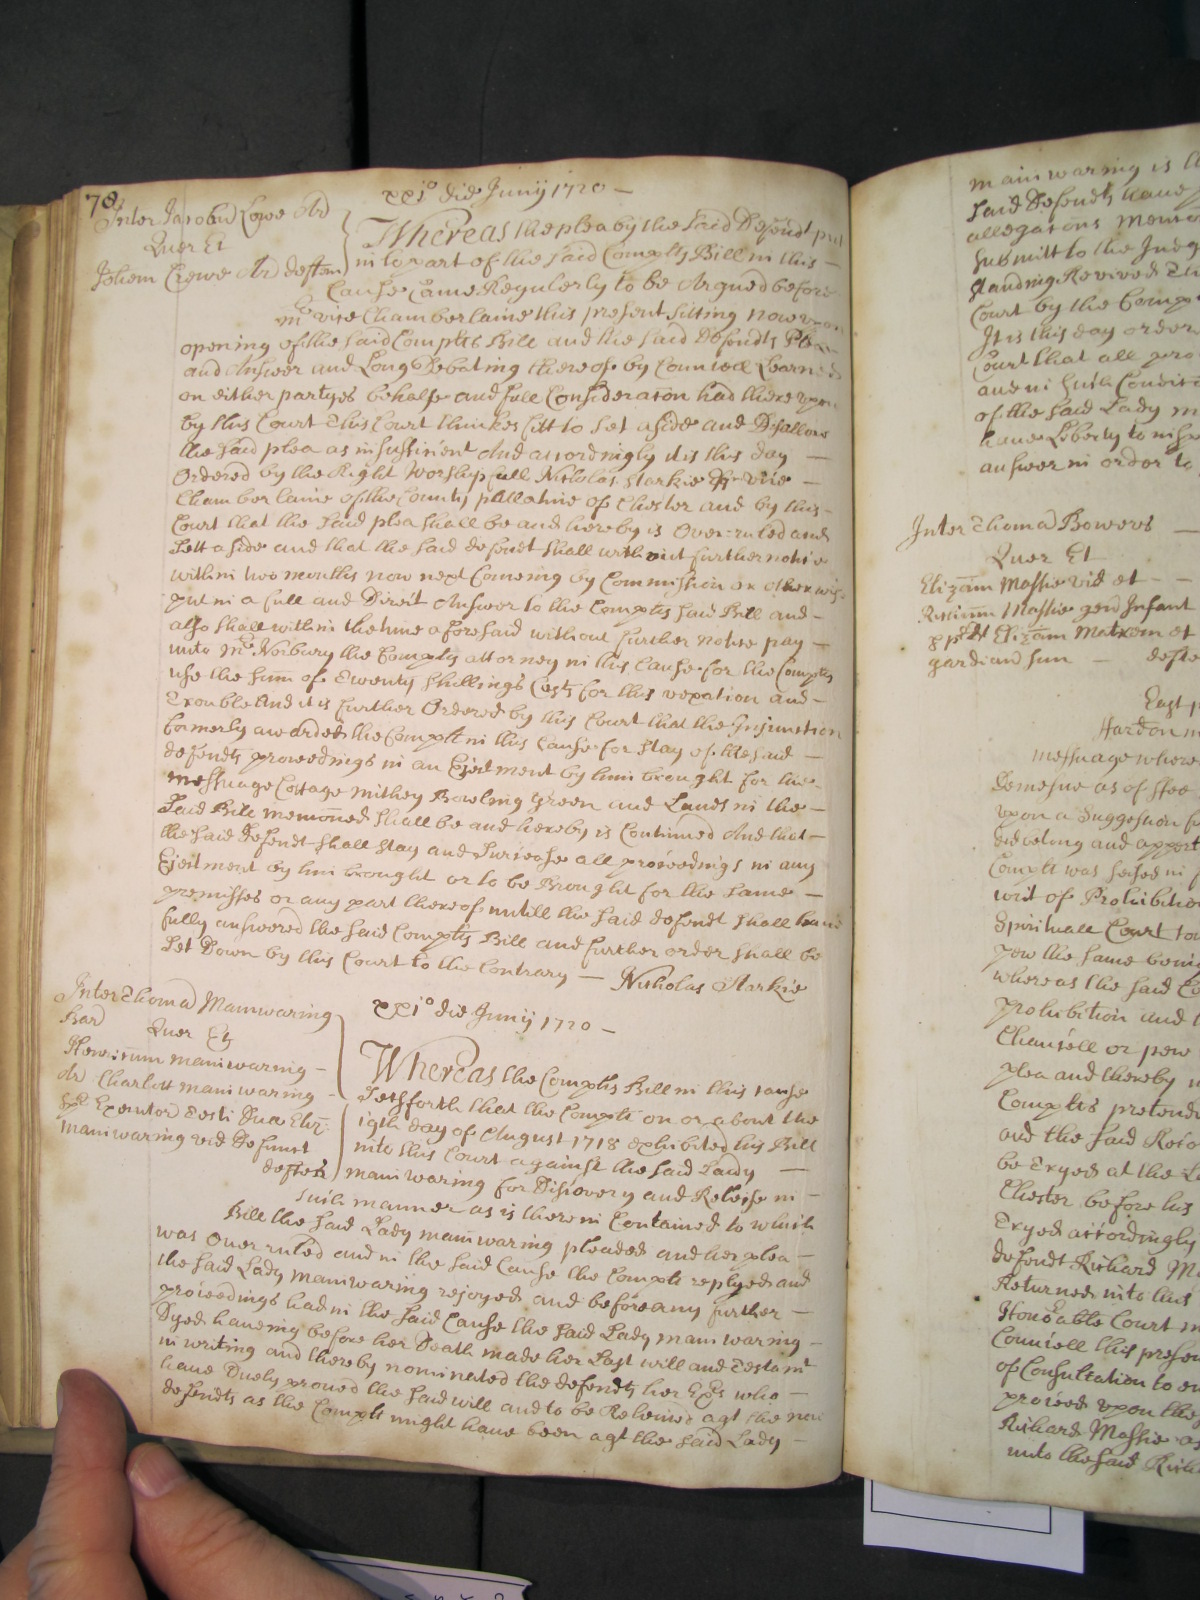 78
xxi° die Junij 1720 —
Inter Jacobum Lowe Ar
Quer Et
Johem Crewe Ar deften
Whereas the plea by the said Defendt put
in to part of the said Complts Bill in this —
Cause Came Regulerly to be Argued before
Mr vice Chamberlaine this present sitting Now upon
opening of the said Complts Bill and the said Defendts Plea
and Answer and Long Debating thereof by Councell Learned
on either partyes behalfe and full Consideraton had there upon
by this Court This Court thinkes fitt to set aside and Disallow
the said plea as insufficient And accordingly it is this day —
Ordered by the Right Worshipfull Nicholas Starkie Esqr vice —
Chamberlaine of the County pallatine of Chester and by this —
Court that the said plea shall be and hereby is Over-ruled and
Sett aside and that the said defendt shall without further notice
within two months now next Comeing by Commission or otherwise
put in a full and Direct Answer to the Complts said Bill and —
also shall within the time aforesaid without further notice pay —
unto Mr Norbury the Complts attorney in this Cause for the Complts
use the sum of Twenty shillings Costs for this vexation and —
Trouble And it is further Ordered by this Court that the Injunction
formerly awarded the Complt in this Cause for stay of the said —
defendts proceedings in an Ejectment by him brought for the —
messuage Cottage Bowling Green and Lands in the —
said Bill menconed shall be and hereby is Continued And that —
the said defendt shall stay and Surcease all proceedings in any
Ejectment by him brought or to be Brought for the same —
premisses or any part thereof untill the said defendt shall have
fully answered the said Complts Bill and further order shall be
Set Down by this Court to the Contrary — Nicholas Starkie
xxi° die Junij 1720 —
Inter Thomam Mainwaring
Bar Quer Et
Henricum mainwaring —
Ar Charlott mainwaring —
Executor Testi Due Eliz:
mainwaring vid Defunct
deftes
Whereas the Complts Bill in this cause
Setts forth that the Complt on or about the
19th day of August 1718 exhibited his Bill
into this Court against the said Lady —
mainwaring for Discovery and Releife in —
such manner as is therein Contained to which
Bill the said Lady mainwaring pleaded and her plea —
was Over ruled and in the said Cause the Complt replyed and
the said Lady mainwaring rejoyned and before any further —
proceedings had in the said Cause the said Lady mainwaring —
Dyed haveing before her Death made her Last will and Testamt
in writing and thereby nominated the defendts her Exrs who —
have Duely proved the said will and to be Releived agt the now
defendts as the Complt might have been agt the said Lady —
mainwaring is
said Defendts have
allegations
submitt to the
standing Revived
Court by the Comp
It is this day order
Court that all
and in such Condit
of the said Lady m
have Liberty to
answer in order to
Inter Thomam Bowers —
Quer Et
Elizam Massie vid et — —
Ricum Massie gen Infant
Elizam Matrem et
gardian sun — defte
East
messuage where
Demesne as of ffee
upon a Suggestion
did belong and appert
Complt was seised in
writ of Prohibition
Spirituall Court
pew the same being
whereas the said
prohibition and
Chancell or pew
plea and thereby
Complts pretend
and the said
be Tryed at the
Chester before his
Tryed accordingly
defendt Richard
Returned into this
Honoable Court
Councell this presen
of Consultation to
proceed upon the
Richard Massie
unto the said Rich